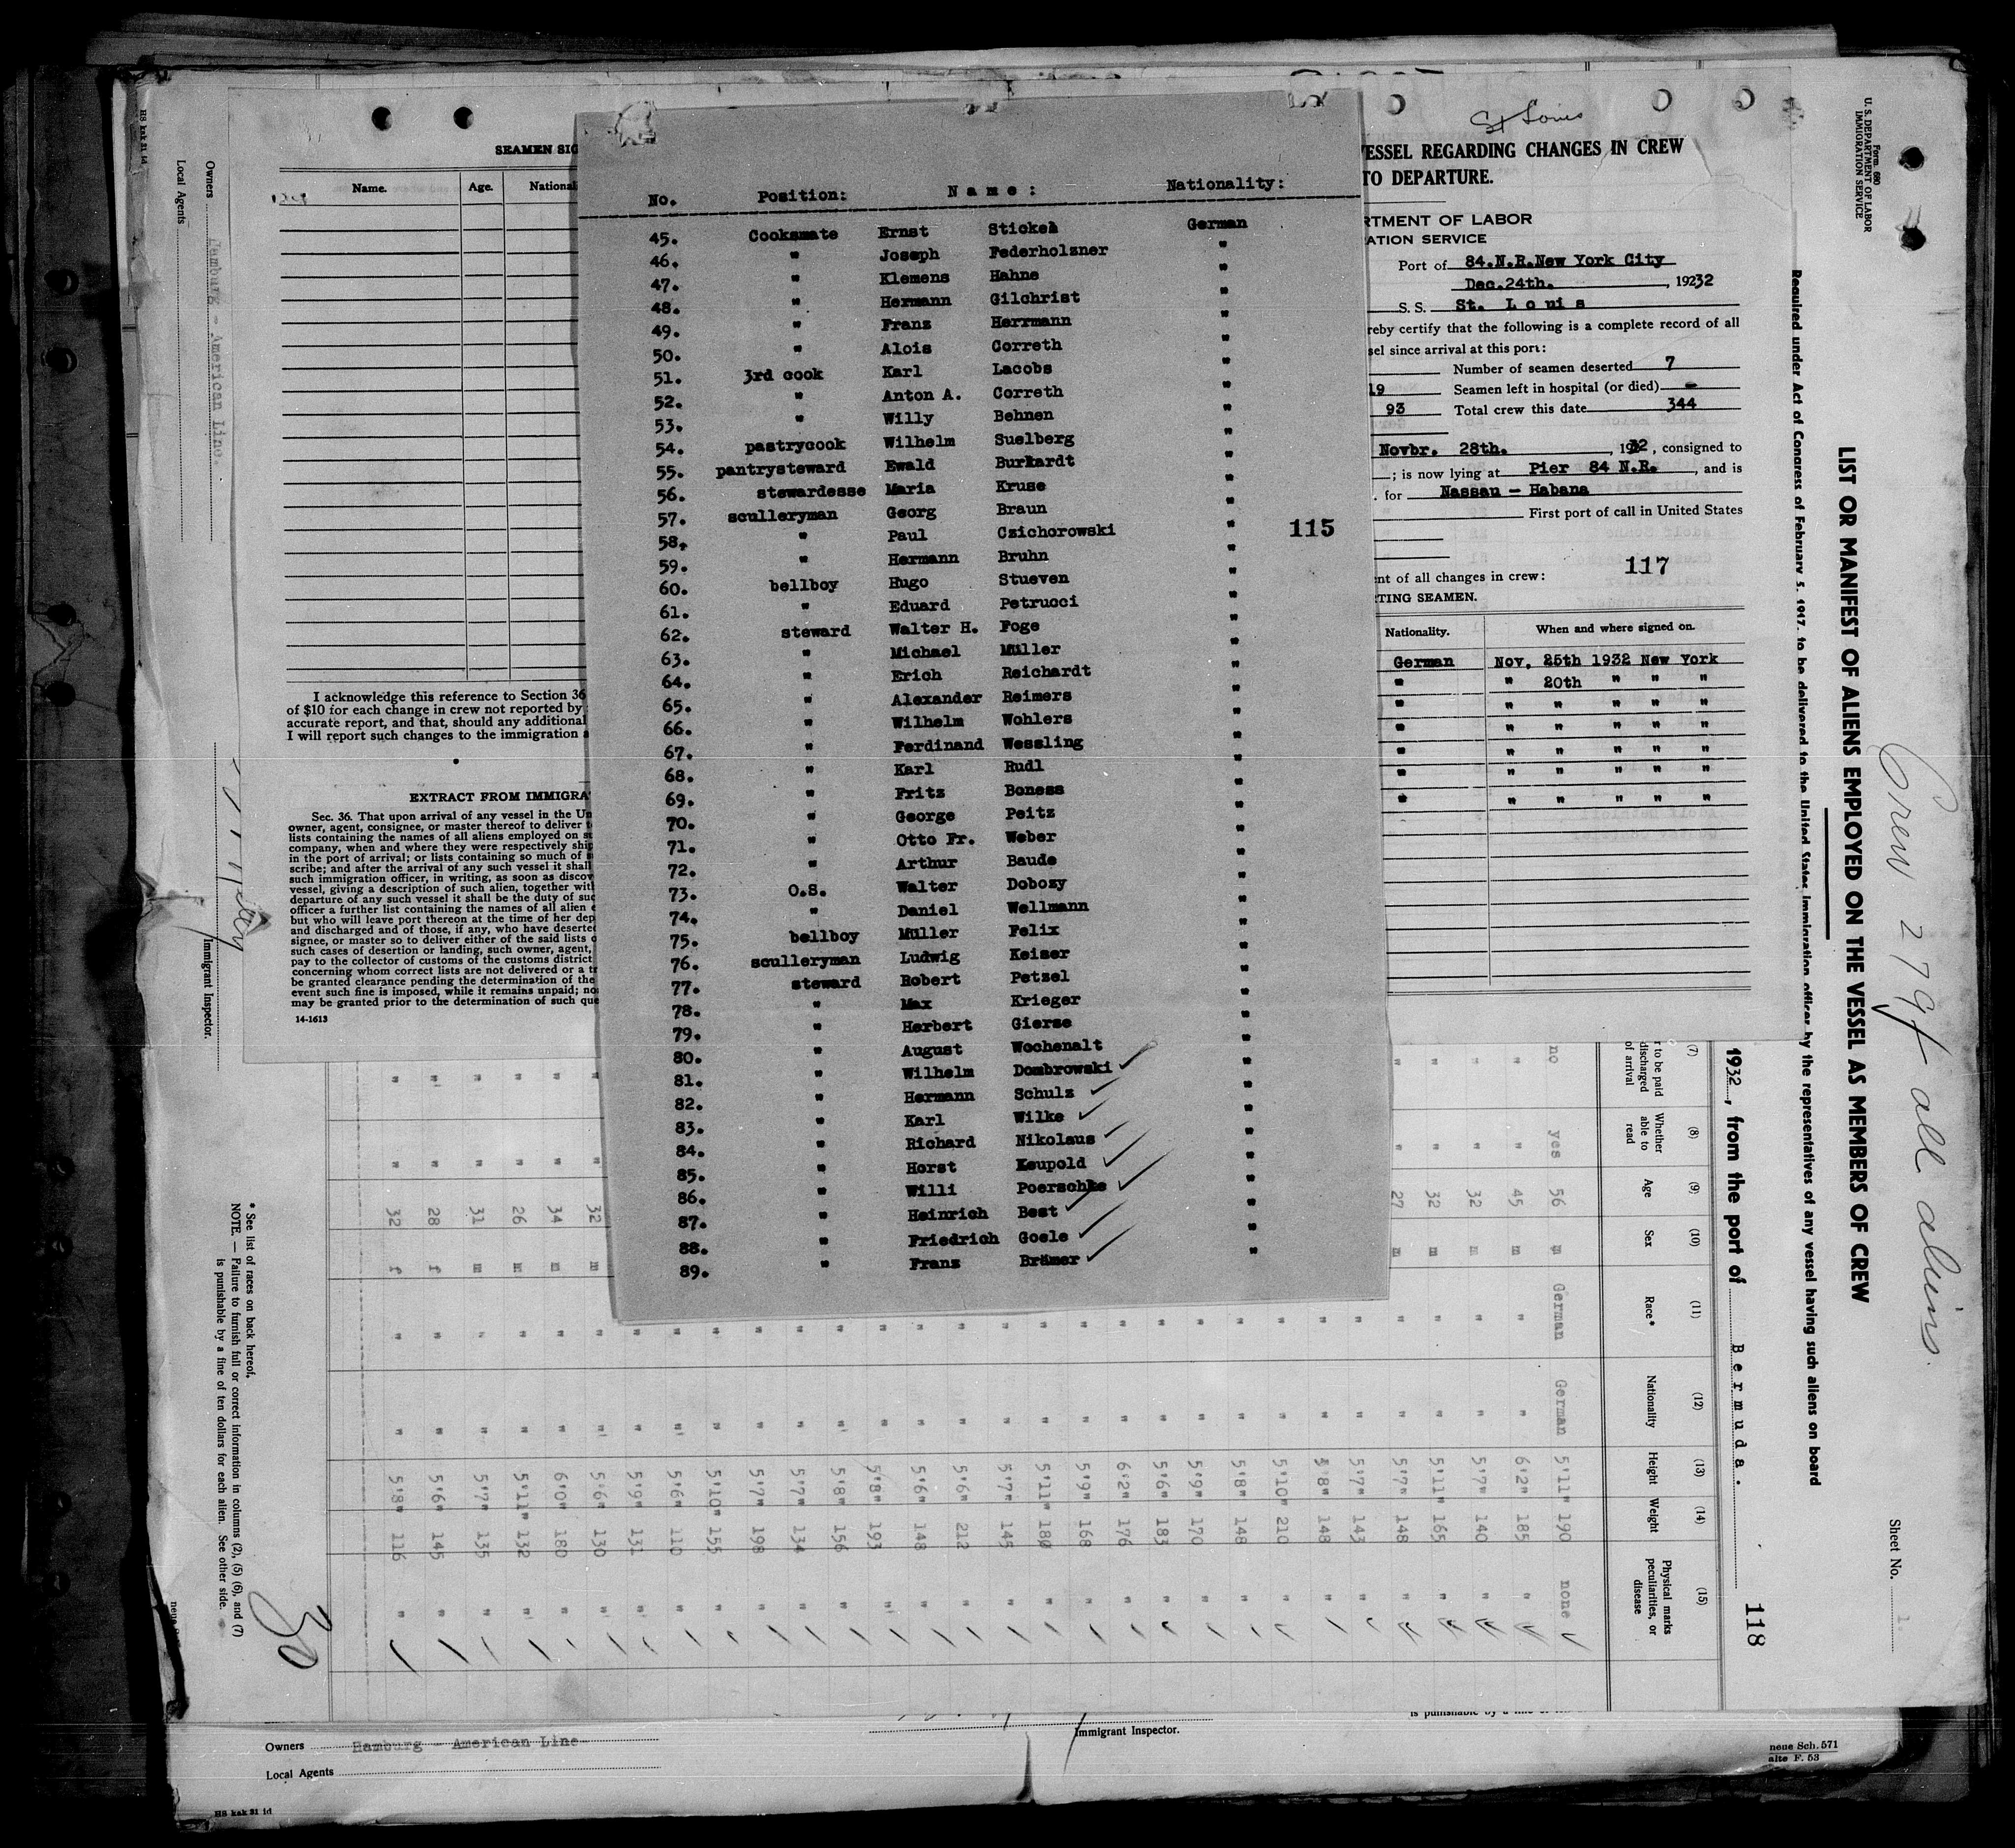 St Louis
SEAMEN SIG
ESSEL REGARDING CHANGES IN CREW
TO DEPARTURE.
Name. Age. National
RTMENT OF LABOR
ATION SERVICE
Port of 84.N.R.New York City
Dec.24th. , 19232
S. S. St. L o u i s
reby certify that the following is a complete record of all
sel since arrival at this port:
Number of seamen deserted 7
19 Seamen left in hospital (or died) -
93 Total crew this date 344
Novbr. 28th. , 1932, consigned to
; is now lying at Pier 84 N.R. , and is
. for Nassau - Habana
First port of call in United States
117
nt of all changes in crew:
TING SEAMEN.
Nationality. When and where signed on.
German Nov. 25th 1932 New York
" " 20th " " "
" " " " " "
" " " " " "
" " " " " "
" " " " " "
" " " " " "
No. Position: N a m e : Nationality:
45. Cooksmate Ernst Stickel German
46. " Joseph Federholzner "
47. " Klemens Hahne "
48. " Hermann Gilchrist "
49. " Franz Herrmann "
50. " Alois Correth "
51. 3rd cook Karl Lacobs "
52. " Anton A. Correth "
53. " Willy Behnen "
54. pastrycook Wilhelm Suelberg "
55. pantrysteward Ewald Burkardt "
56. stewardesse Maria Kruse "
57. sculleryman Georg Braun "
58. " Paul Czichorowski " 115
59. " Hermann Bruhn "
60. bellboy Hugo Stueven "
61. " Eduard Petrucci "
62. steward Walter H. Foge "
63. " Michael Müller "
64. " Erich Reichardt "
65. " Alexander Reimers "
66. " Wilhelm Wohlers "
67. " Ferdinand Wessling "
68. " Karl Rudl "
69. " Fritz Boness "
70. " George Peitz "
71. " Otto Fr. Weber "
72. " Arthur Baude "
73. O.S. Walter Dobozy "
74. " Daniel Wellmann "
75. bellboy Müller Felix "
76. sculleryman Ludwig Keiser "
77. steward Robert Petzel "
78. " Max Krieger "
79. " Herbert Gierse "
80. " August Wochenalt "
81. " Wilhelm Dombrowski "
82. " Hermann Schulz "
83. " Karl Wilke "
84. " Richard Nikolaus "
85. " Horst Keupold "
86. " Willi Poerschke "
87. " Heinrich Best "
88. " Friedrich Goele "
89. " Franz Brämer "
I acknowledge this reference to Section 36
of $10 for each change in crew not reported by
accurate report, and that, should any additional
I will report such changes to the immigration
EXTRACT FROM IMMIGRA
Sec. 36. That upon arrival of any vessel in the Un
owner, agent, consignee, or master thereof to deliver
lists containing the names of all aliens employed on
company, when and where they were respectively ship
in the port of arrival; or lists containing so much of
scribe; and after the arrival of any such vessel it shall
such immigration officer, in writing, as soon as discov
vessel, giving a description of such alien, together with
departure of any such vessel it shall be the duty of suc
officer a further list containing the names of all alien
but who will leave port thereon at the time of her dep
and discharged and of those, if any, who have deserted
signee, or master so to deliver either of the said lists
such cases of desertion or landing, such owner, agent,
pay to the collector of customs of the customs district
concerning whom correct lists are not delivered or a
be granted clearance pending the determination of the
event such fine is imposed, while it remains unpaid;
may be granted prior to the determination of such que
14-1613
Form 680
U. S. DEPARTMENT OF LABOR
IMMIGRATION SERVICE
Crew 279 all aliens.
Sheet No. 1.
LIST OR MANIFEST OF ALIENS EMPLOYED ON THE VESSEL AS MEMBERS OF CREW
Required under Act of Congress of February 5, 1917, to be delivered to the United States Immigration officer by the representatives of any vessel having such aliens on board
1932 , from the port of B e r m u d a . 118
(7) (8) (9) (10) (11) (12) (13) (14) (15)
r to be paid discharged of arrival
Whether able to read
Age
Sex
Race*
Nationality
Height
Weight
Physical marks peculiarities, or disease
no yes 56 m German German 5'11" 190 none
" " 45 m " " 6'2" 185 "
" " 32 m " " 5'7" 140 "
" " 32 m " " 5'11" 165 "
" " 27 m " " 5'7" 148 "
" " 5'7" 143 "
" " 5'8" 148 "
" " 5'10" 210 "
" " 5'8" 148 "
" " 5'9" 170 "
" " 5'6" 183 "
" " 6'2" 176 "
" " 5'9" 168 "
" " 5'11" 180 "
" " 5'7" 145 "
" " 5'6" 212 "
" " 5'6" 148 "
" " 5'8" 193 "
" " 5'8" 156 "
" " 5'7" 134 "
" " 5'7" 198 "
" " 5'10" 155 "
" " 5'6" 110 "
" " 5'9" 131 "
32 m " " 5'6" 130 "
" " 34 m " " 6'0" 180 "
" " 26 m " " 5'11" 132 "
" " 31 m " " 5'7" 135 "
" " 28 f " " 5'6" 145 "
" " 32 f " " 5'8" 116 "
30
* See list of races on back hereof.
NOTE. — Failure to furnish full or correct information in columns (2), (5) (6), and (7)
is punishable by a fine of ten dollars for each alien. See other side.
Immigrant Inspector.
Owners Hamburg - American Line.
Local Agents
HS kak 31 id
Immigrant Inspector.
Owners Hamburg - American Line
Local Agents
HS kak 31 id
neue Sch. 571
alte F. 53